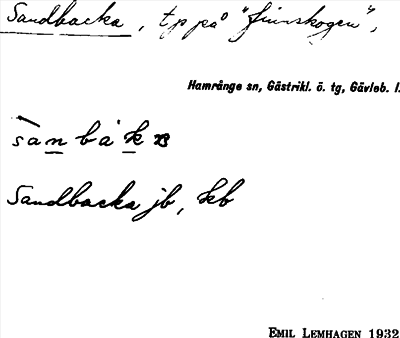 Sandbacka, tp på "finnskogen",
Hamrånge sn, Gästrikl. ö. tg, Gävleb. l.
Sandbacka jb, kb
EMIL LEMHAGEN 1932